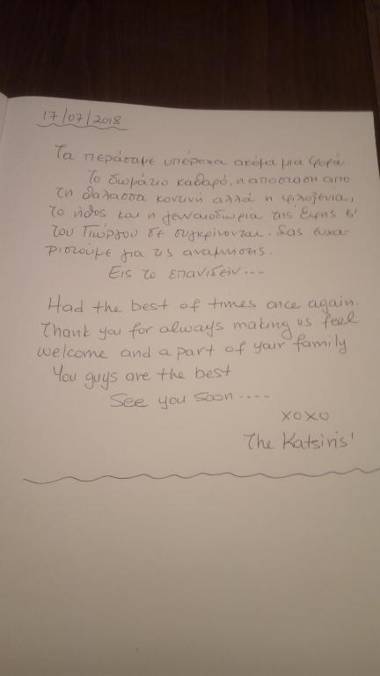 17/07/2018
Τα περάσαμε υπέροχα ακόμα μια φορά
Το δωμάτιο καθαρό, η απόσταση απο
τη θάλασσα κοντινή αλλά η φιλοξενία,
το ήθος και η γενναιοδωρία της Έφης κ'
του Γιώργου δε συγκρίνονται. Σας ευχα-
ριστούμε για τις αναμνήσεις.
Εις το επανιδείν...
Had the best of times once again.
Thank you for always making us feel
welcome and a part of your family
You guys are the best
See you soon ....
xoxo
The Katsiris'